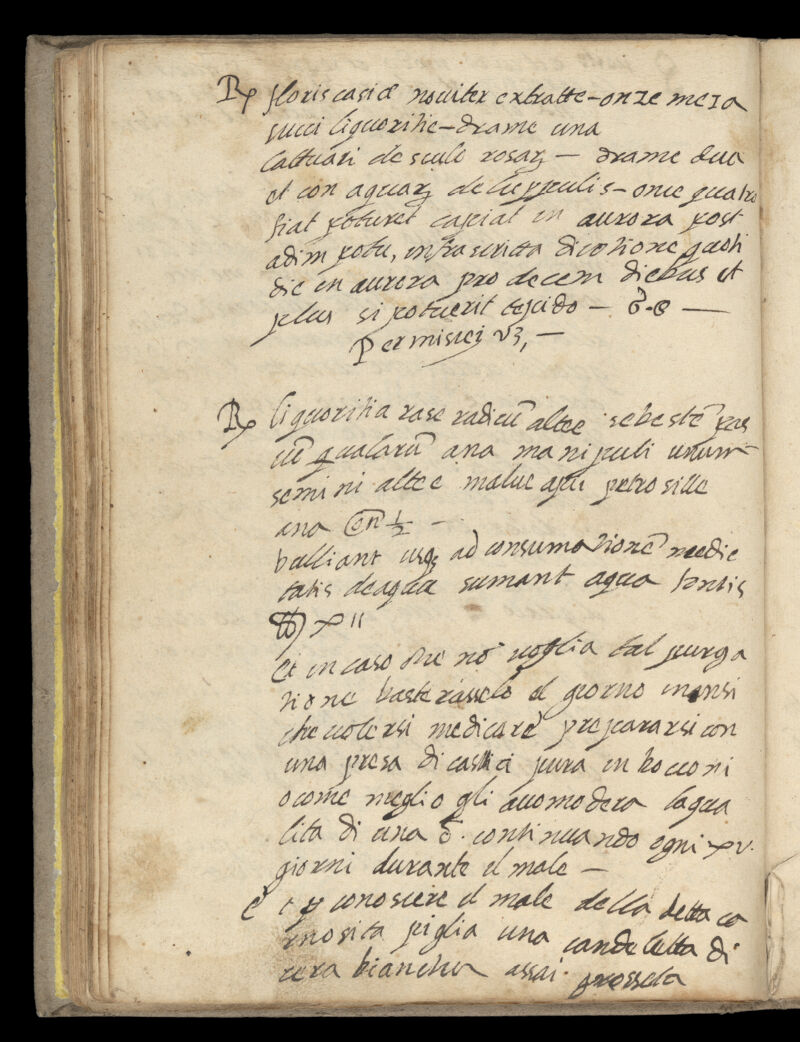 ℞ floris casiæ noviter extratte - onze meza
succi liquoritie - drame una
lattuari de sucho rosaꝝ — drame dua
et con aquaꝝ de lupulis - once quatro
fiat poturet capiat in aurora post
adim potu, infrascritta dicotione quoti
die in aurora pro decem diebus et
plus si potuerit tepido —
Permisiei —
℞ liquoritia rase radicū altee sebestē pas
ana manipuli unum
semini altee malve apii petrosille
ana ʒ ½ -
bulliant usqꝫ ad consumationē medie
tatis deaqua sumant aqua fontis
℔ x ii
Et in caso che nō voglia tal purga
tione basterasselo el giorno inansi
che volersi medicare prepararsi con
una presa di cassia pura in bocconi
o come meglio gli acomodera laqua
lita di una ʒ. continuando ogni xv.
giorni durante el male —
Et ꝑ conosciere il male della detta ca
rnosita piglia una candeletta di
cera biancha assai grosseta